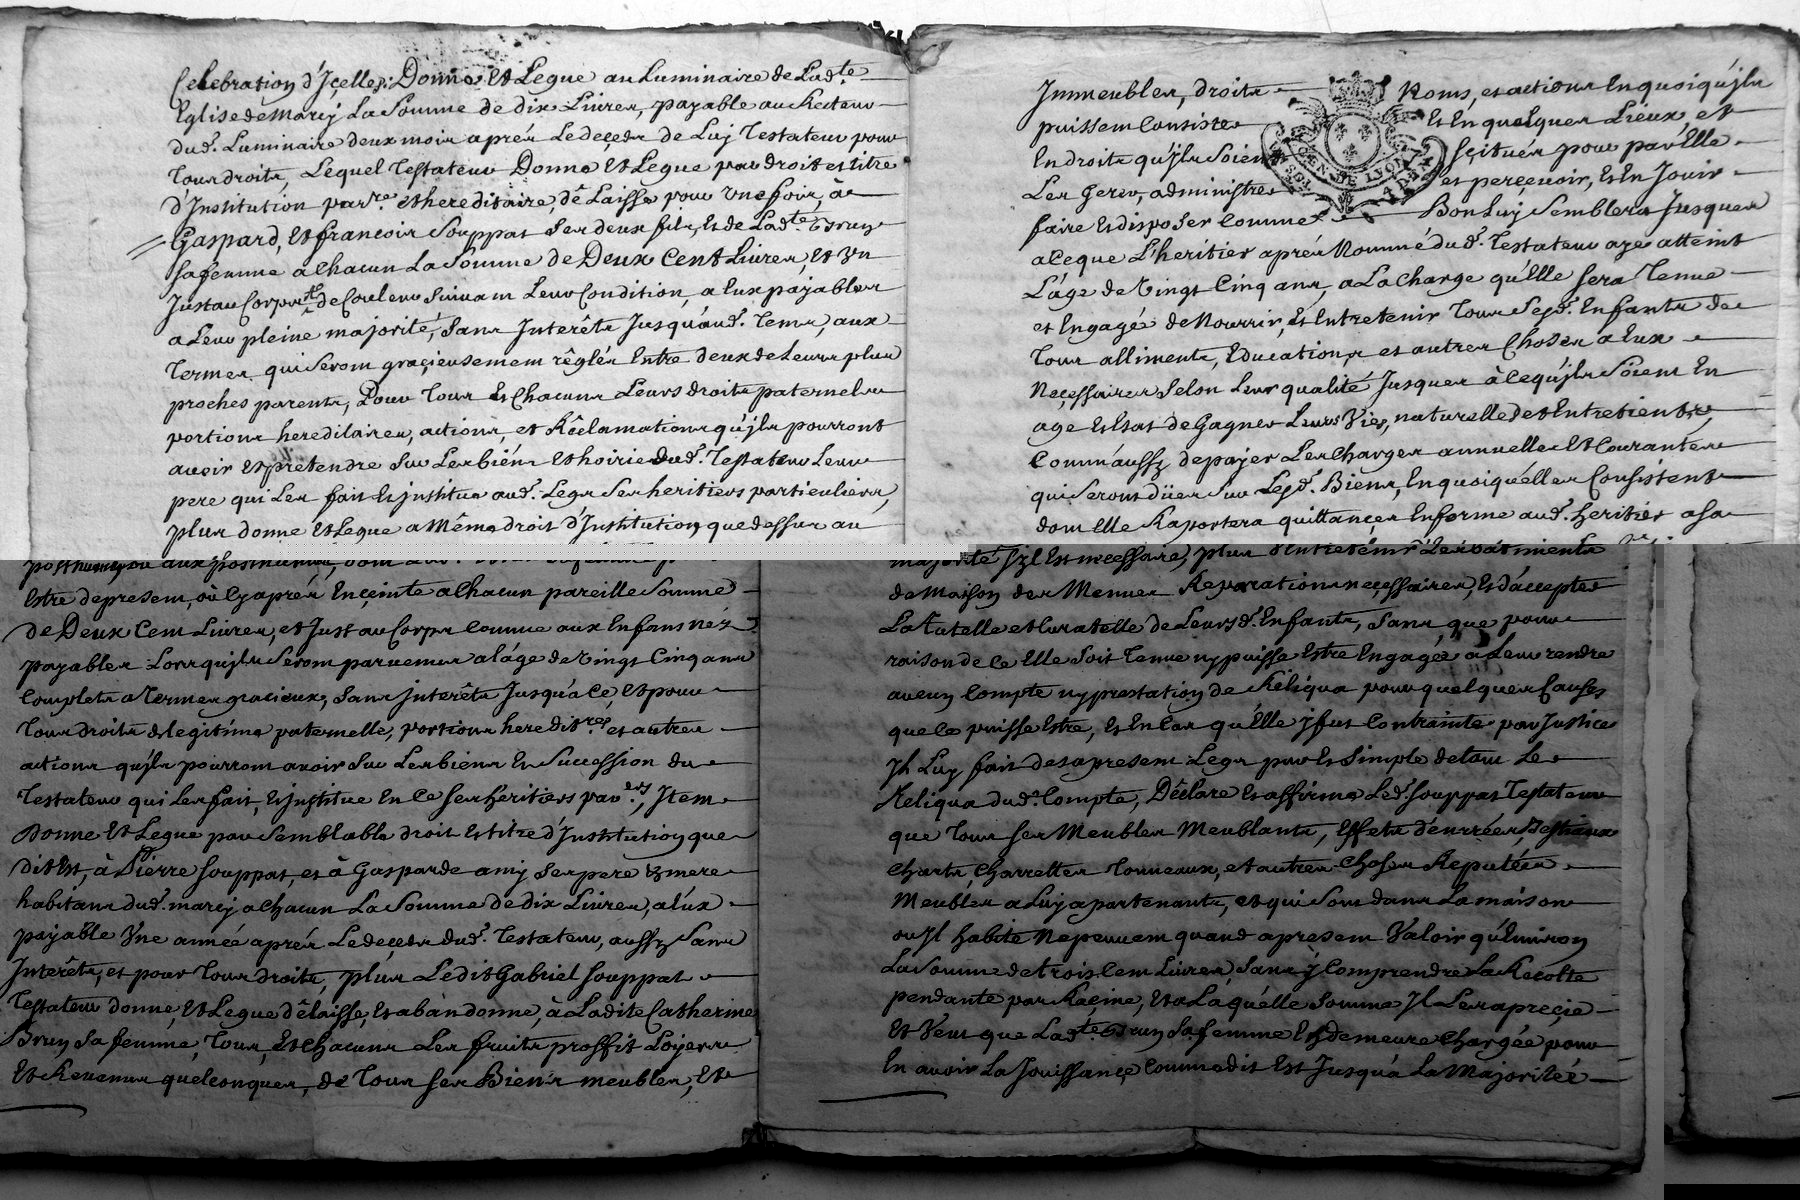 Celebration d'Jçelles: Donne Et Legue au Luminaire de Lad.te
Eglise de Marcy La Somme de dix Livres, payable au Recteur
dud. Luminaire deux mois aprés Le deçeds de Luy Testateur pour
Tous droits, Lequel Testateur Donne Et Legue par droit et titre
d'Institution par.re et hereditaire, dêLaisse pour Une fois, à
Gaspard, Et francois Souppat Ses deux fils, Et de Lad.te Brun
Sa femme a Chacun La Somme de Deux Cent Livres, Et Un
Justau Corps de Couleur Suivam Leur Condition, a Eux payables
a Leur pleine majorité, Sans Interêts Jusqu'aud. Tems, aux
Termes qui Serom graçieusemem rêglés Entre deux de Leurs plus
proches parents, Pour Tous Et Chacuns Leurs droits paternels
portions hereditaires, actions, et Rêclamations qu'jls pourront
avoir Et pretendre Sur Les biéns Et hoirie dud. Testateur Leur
pere qui Les fait Et jnstitue aud. Legs Ses heritiers particuliers,
plus donne Et Legue a Même droit d'Institution, que dessus au
posthume ou aux posthumes,
Estre de presem, où Cy aprés Enceinte a Chacun pareille Somme
de Deux Cem Livres, et Just au Corps Comme aux Enfans nés
payables Lorsqu'jls Serom parvenus a l'âge de Vingt Cinq ans
Complets a Termes gracieux, Sans jnterêts Jusqu'a Ce Et pour
Tous droits de legitime paternelle, portions heredit.res et autres
actions qu'jls pourrom avoir Sur Les biens Et Succession du
Testateur qui Les fait, Et jnstitue En Ce Ses héritiers par.ers, Jtem
Donne Et Legue par Semblable droit Et titre d'Institution que
dit Est, à Pierre Souppat, et à Gasparde amy Ses pere & mere
habitans dud. marcy a Chacun La Somme de dix Livres, a Eux
payable Une année aprés Le deçeds dud. Testateur, aussy Sans
Interêts, et pour Tous droits, plus Ledit Gabriel Souppat
Testateur donne, Et Legue dêlaisse, Et abandonne, à Ladite Catherine
Brun Sa femme, Tous, Et Chacuns Les fruits proffits Loyers
Et Revenus quelconques, de Tous Ses Biens meubles, Et
Jmmeubles, droits Noms, et actions En quoiqu'jls
puissem Consister Et En quelques Lieux et
Endroits qu'jls Soiém sçitués pour par Elle
Les Gerer, administrer et perçevoir, Et En Jouir
faire Et disposer Comme Bon Luy Semblera Jusques
GEN. DE LYON
4 D.
a Ceque L'heritier aprés Nommé dud. Testateur aye atteint
L'âge de Vingt Cinq ans, a La Charge qu'Elle Sera Tenue
et Engagée de Nourrir, Et Entretenir Tous Sesd. Enfants de
Tous alliments, Educations, et autres Choses a Eux
Neçessaires Selon Leur qualité Jusques à Cequ'jls Soiem En
age Et Etat de Gagner Leurs Vies, naturelle det Entretients,
Comm'aussy de payer Les Charges annuelles Et Courantes
qui Seront düés Sur Lesd. Biens, En quoiqu'elles Consistent
dom Elle Raportera quittances En forme aud. heritier a Sa
majorité s'jl Est neçessaire, plus d'Entretenir Les bâtiments
de Maison des Menues Reparations neçessaires, Et d'accepter
La Tutelle et Curatelle de Leursd. Enfants, Sans que pour
raison de Ce Elle Soit Tenue ny puisse Estre Engagée a Leur rendre
aucun Compte ny prestation de Reliqua pour quelques Causes
que Ce puisse Estre, Et En Cas qu'Elle y fut Contrainte par Justice
Jl Luy fait des apresem Legs pur Et Simple de tout Le
Reliqua dud. Compte, Dêclare Et affirme Led. Souppat Testateur
que Tous Ses Meubles Meublants, Effets denrrées, Bestiaux
Charts, Charrettes Tonneaux, et autres Choses Reputées
Meubles a Luy apartenants, et qui Som dans La maison
ou Jl habite Ne peuvem quand apresem Valoir qu'Environ
La Somme de trois Cem Livres, Sans y Comprendre La Recolte
pendante par Raçine, Et a Laquélle Somme Jl Les apreçie
Et Veut que Lad.te Brun Sa femme En demeure Chargée pour
En avoir La Jouissançe Comme dit Est Jusqu'a La Majorité